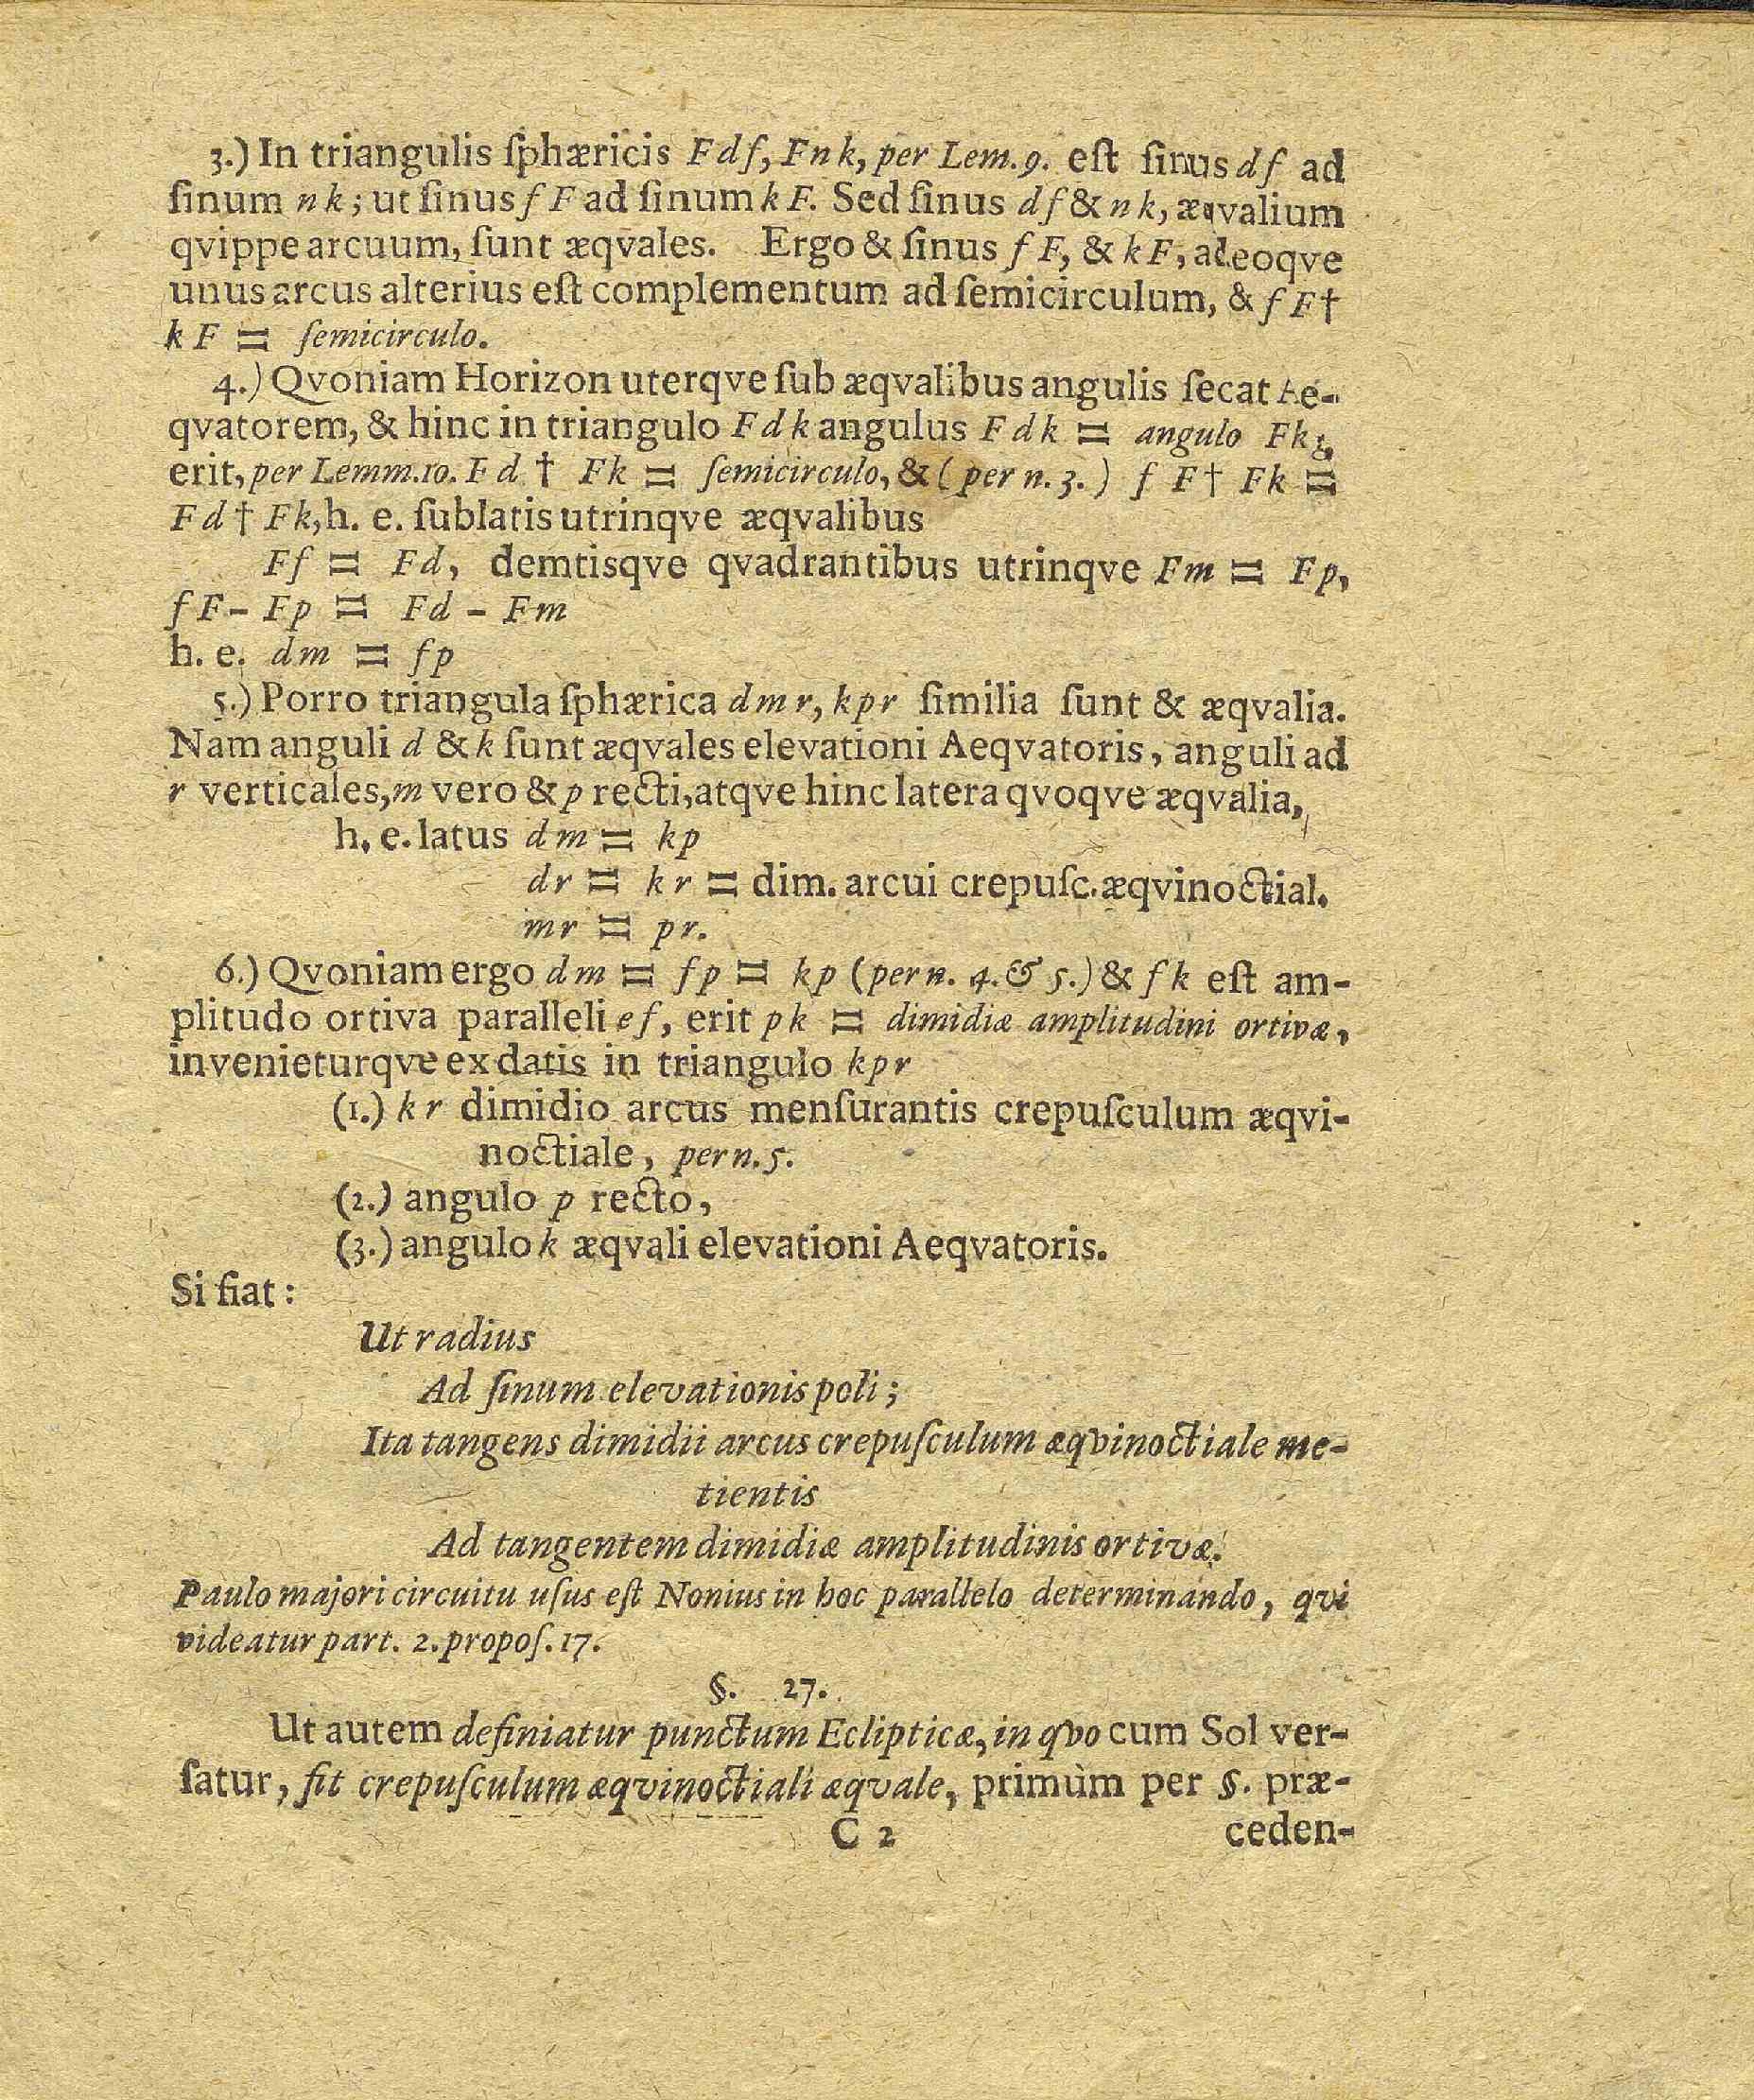 3.) In triangulis ſphæricis F d f, F n k, per Lem. 9. eſt ſinus d f ad
ſinum n k; ut ſinus f F ad ſinum k F. Sed ſinus d f & n k, æqvalium
qvippe arcuum, ſunt æqvales. Ergo & ſinus f F, & k F, adeoqve
unus arcus alterius eſt complementum ad ſemicirculum, & f F †
k F = ſemicirculo.
4.) Qvoniam Horizon uterqve ſub æqvalibus angulis ſecat Ae-
qvatorem, & hinc in triangulo F d k angulus F d k = angulo Fkg,
erit, per Lemm. 10. F d † Fk = ſemicirculo, & ( per n. 3. ) f F † Fk =
F d † Fk, h. e. ſublatis utrinqve æqvalibus
Ff = Fd, demtisqve qvadrantibus utrinqve Fm = Fp,
f F - Fp = Fd - Fm
h. e. dm = fp
5.) Porro triangula ſphærica d m r, k p r ſimilia ſunt & æqvalia.
Nam anguli d & k ſunt æqvales elevationi Aeqvatoris, anguli ad
r verticales, m vero & p recti, atqve hinc latera qvoqve æqvalia,
h. e. latus dm = kp
dr = kr = dim. arcui crepuſc. æqvinoctial.
mr = pr.
6.) Qvoniam ergo dm = fp = kp (per n. 4. & 5.) & f k eſt am-
plitudo ortiva paralleli ef, erit pk = dimidiæ amplitudini ortivæ,
invenieturqve ex datis in triangulo kpr
(1.) k r dimidio arcus menſurantis crepuſculum æqvi-
noctiale, per n. 5.
(2.) angulo p recto,
(3.) angulo k æqvali elevationi Aeqvatoris.
Si fiat:
Ut radius
Ad ſinum elevationis poli;
Ita tangens dimidii arcus crepuſculum æqvinoctiale me-
tientis
Ad tangentem dimidiæ amplitudinis ortivæ.
Paulo majori circuitu uſus eſt Nonius in hoc parallelo determinando, qvi
videatur part. 2. propoſ. 17.
§. 27.
Ut autem definiatur punctum Eclipticæ, in qvo cum Sol ver-
ſatur, fit crepuſculum æqvinoctiali æqvale, primùm per §. præ-
C 2 ceden-